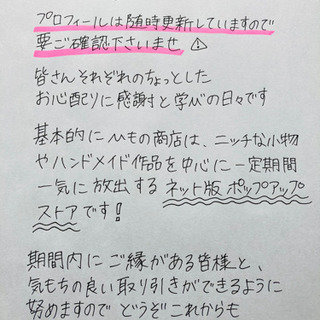 プロフィールは随時更新していますので
要ご確認下さいませ ⚠
皆さんそれぞれのちょっとした
お心配りに感謝と学びの日々です
基本的にひもの商店は、ニッチな小物
やハンドメイド作品を中心に一定期間
一気に放出する ネット版 ポップアップ
ストアです!
期間内にご縁がある皆様と、
気もちの良い取り引きができるように
努めますので どうぞこれからも